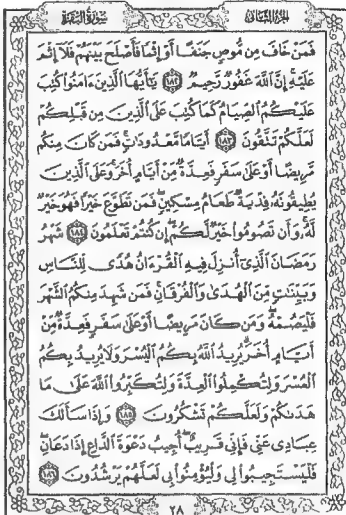 سورة البقرة
الجزء الثاني
فَمَنْ خَافَ مِن مُّوصٍ جَنَفًا أَوْ إِثْمًا فَأَصْلَحَ بَيْنَهُمْ فَلَآ إِثْمَ
عَلَيْهِ إِنَّ ٱللَّهَ غَفُورٌ رَّحِيمٌ ١٨٢ يَٰٓأَيُّهَا ٱلَّذِينَ ءَامَنُوا۟ كُتِبَ
عَلَيْكُمُ ٱلصِّيَامُ كَمَا كُتِبَ عَلَى ٱلَّذِينَ مِن قَبْلِكُمْ
لَعَلَّكُمْ تَتَّقُونَ ١٨٣ أَيَّامًا مَّعْدُودَٰتٍ فَمَن كَانَ مِنكُم
مَّرِيضًا أَوْ عَلَىٰ سَفَرٍ فَعِدَّةٌ مِّنْ أَيَّامٍ أُخَرَ وَعَلَى ٱلَّذِينَ
يُطِيقُونَهُۥ فِدْيَةٌ طَعَامُ مِسْكِينٍ فَمَن تَطَوَّعَ خَيْرًا فَهُوَ خَيْرٌ
لَّهُۥ وَأَن تَصُومُوا۟ خَيْرٌ لَّكُمْ إِن كُنتُمْ تَعْلَمُونَ ١٨٤ شَهْرُ
رَمَضَانَ ٱلَّذِىٓ أُنزِلَ فِيهِ ٱلْقُرْءَانُ هُدًى لِّلنَّاسِ
وَبَيِّنَٰتٍ مِّنَ ٱلْهُدَىٰ وَٱلْفُرْقَانِ فَمَن شَهِدَ مِنكُمُ ٱلشَّهْرَ
فَلْيَصُمْهُ وَمَن كَانَ مَرِيضًا أَوْ عَلَىٰ سَفَرٍ فَعِدَّةٌ مِّنْ
أَيَّامٍ أُخَرَ يُرِيدُ ٱللَّهُ بِكُمُ ٱلْيُسْرَ وَلَا يُرِيدُ بِكُمُ
ٱلْعُسْرَ وَلِتُكْمِلُوا۟ ٱلْعِدَّةَ وَلِتُكَبِّرُوا۟ ٱللَّهَ عَلَىٰ مَا
هَدَىٰكُمْ وَلَعَلَّكُمْ تَشْكُرُونَ ١٨٥ وَإِذَا سَأَلَكَ
عِبَادِى عَنِّى فَإِنِّى قَرِيبٌ أُجِيبُ دَعْوَةَ ٱلدَّاعِ إِذَا دَعَانِ
فَلْيَسْتَجِيبُوا۟ لِى وَلْيُؤْمِنُوا۟ بِى لَعَلَّهُمْ يَرْشُدُونَ ١٨٦
٢٨